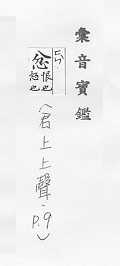 彙音寶鑑
忿
恨也
怒也
(君上上聲,
p.9)